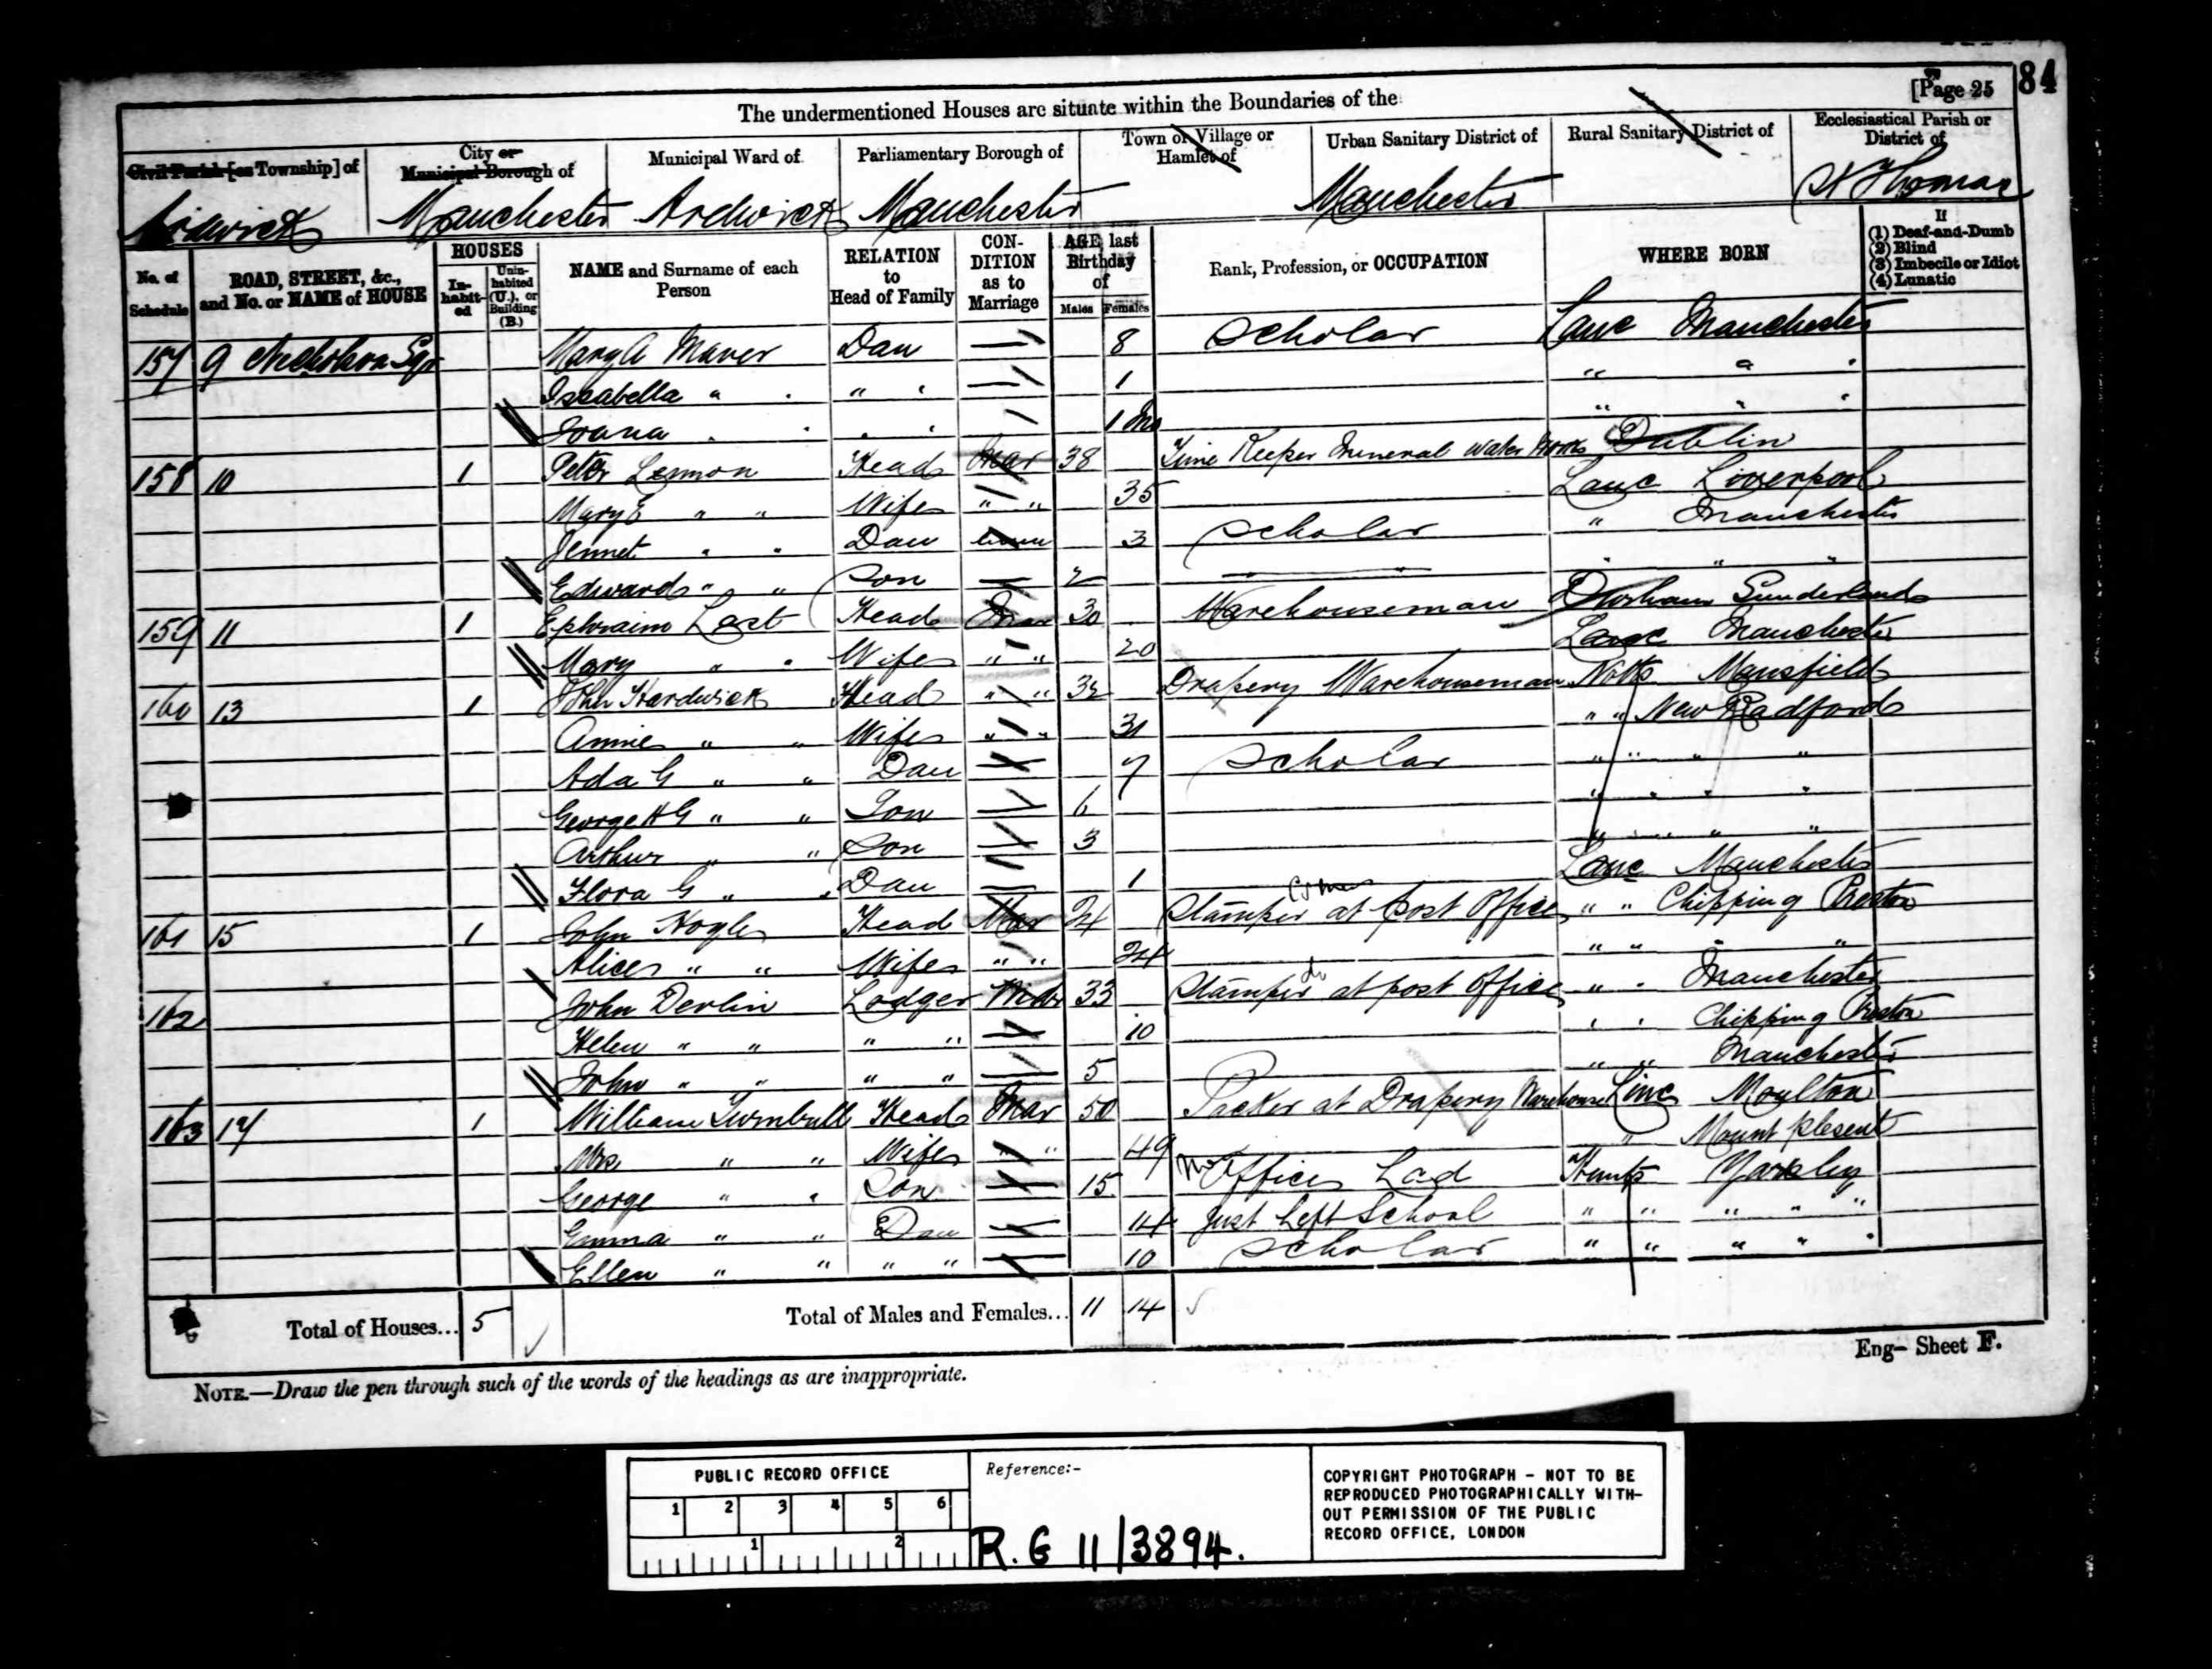 [Page 25 84
The undermentioned Houses are situate within the Boundaries of the
Civil Parish [or Township] of City or Municipal Borough of Municipal Ward of Parliamentary Borough of Town or Village or Hamlet of Urban Sanitary District of Rural Sanitary District of Ecclesiastical Parish or District of
Ardwick Manchester Ardwick Manchester Manchester St Thomas
No. of Schedule ROAD, STREET, &c., and No. or NAME of HOUSE HOUSES Inhabited Uninhabited (U.), or Building (B.) NAME and Surname of each Person RELATION to Head of Family CONDITION as to Marriage AGE last Birthday of Males Females Rank, Profession, or OCCUPATION WHERE BORN If (1) Deaf-and-Dumb (2) Blind (3) Imbecile or Idiot (4) Lunatic
157 9 Nicholson Sqr Mary A Maver Dau 8 Scholar Lanc Manchester
Isabella " " " 1 " " "
Joana " " " " 1 Mo " " "
158 10 1 Peter Lemon Head Mar 38 Time Keeper Mineral Water Works Dublin
Mary E " " Wife " " 35 Lanc Liverpool
Jennet " " Dau 3 Scholar " Manchester
Edward " " Son 2 " " "
159 11 1 Ephraim Last Head Mar 30 Warehouseman Durham Sunderland
Mary " " Wife " " 20 Lanc Manchester
160 13 1 John Hardwick Head " " 32 Drapery Warehouseman Notts Mansfield
Annie " " Wife " " 31 " " New Radford
Ada G " " Dau 7 Scholar " " " "
George H G " " Son 6 " " " "
Arthur " " Son 3 " " " "
Flora G " " Dau 1 Lanc Manchester
161 15 1 John Hogle Head Mar 24 Stamper at Post Office " " Chipping Preston
Alice " " Wife " " 24 " " " "
162 John Devlin Lodger Widr 33 Stamper do at post office " " Manchester
Helen " " " " 10 " " Chipping Preston
John " " " " 5 " " Manchester
163 17 1 William Turnbull Head Mar 50 Packer at Drapery Warehouse Linc Moulton
Mrs " " Wife " " 49 " Mount Plesent
George " " Son 15 Office Lad Hunts Yaxley
Emma " " Dau 14 Just Left School " " " " "
Ellen " " " " 10 Scholar " " " " "
Total of Houses... 5 Total of Males and Females... 11 14
Eng– Sheet F.
NOTE.—Draw the pen through such of the words of the headings as are inappropriate.
PUBLIC RECORD OFFICE
1 2 3 4 5 6
1 2
Reference:-
R. G 11/3894.
COPYRIGHT PHOTOGRAPH - NOT TO BE
REPRODUCED PHOTOGRAPHICALLY WITH-
OUT PERMISSION OF THE PUBLIC
RECORD OFFICE, LONDON